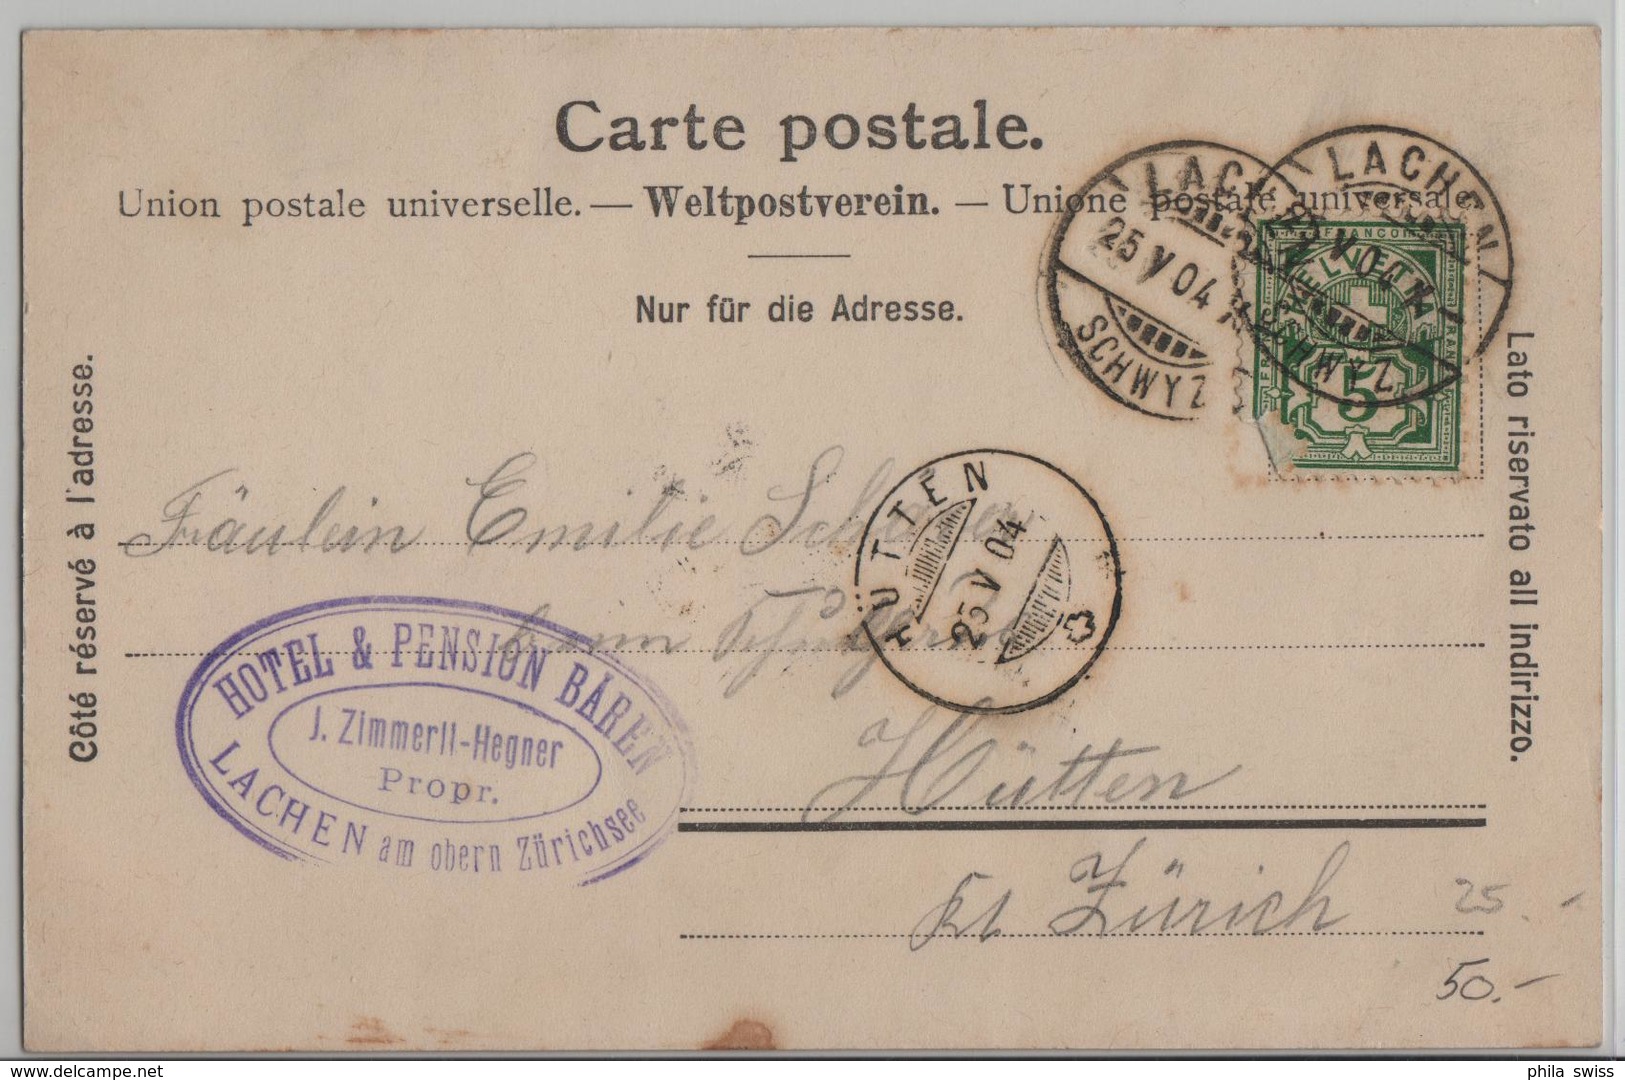 Carte postale.
Union postale universelle. — Weltpostverein. — Unione postale universale.
Nur für die Adresse.
Côté réservé à l'adresse.
Lato riservato all indirizzo.
LACHEN
25 V 04
SCHWYZ
LACHEN
V 04
SCHWYZ
FRANCO
HELVETIA
FRANCO
5
HÜTTEN
25 V 04
Fräulein Emilie
beim
Hütten
Kt Zürich
HOTEL & PENSION BÄREN
J. Zimmerli-Hegner
Propr.
LACHEN am obern Zürichsee
25.-
50.-
phila swiss